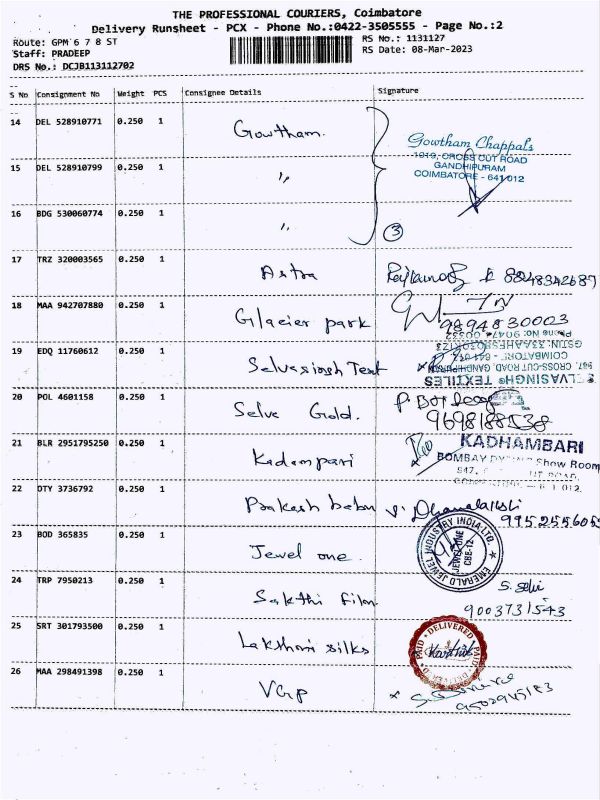 THE PROFESSIONAL COURIERS, Coimbatore
Delivery Runsheet - PCX - Phone No.:0422-3505555 - Page No.:2
Route: GPM 6 7 8 ST
RS No.: 1131127
Staff: PRADEEP
RS Date: 08-Mar-2023
DRS No.: DCJB113112702
S No Consignment No Weight PCS Consignee Details Signature
14 DEL 528910771 0.250 1 Gowtham.
Gowtham Chappals
1019, CROSS CUT ROAD
GANDHIPURAM
COIMBATORE - 641 012
15 DEL 528910799 0.250 1 〃
16 BDG 530060774 0.250 1 〃
3
17 TRZ 320003565 0.250 1 Astra
18 MAA 942707880 0.250 1 Glacier park
9894830003
19 EDQ 11760612 0.250 1 Selvasingh Text
TEXTILES
20 POL 4601158 0.250 1 Selva Gold.
21 BLR 2951795250 0.250 1 Kadampari
KADHAMBARI
Show Room
22 DTY 3736792 0.250 1 Prakash babu
23 BOD 365835 0.250 1 Jewel one.
EMERALD JEWEL INDUSTRY INDIA LTD.
JEWEL ONE
CBE-12
24 TRP 7950213 0.250 1 Sakthi film
9003731543
25 SRT 301793500 0.250 1 Lakshmi silks
DELIVERED
PAID
26 MAA 298491398 0.250 1 VGP